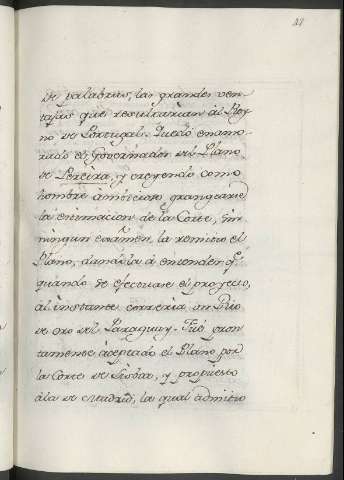 de palabras, las grandes ven-
tajas que resultarian al Rey-
no de Portugal. Quedó enamo-
rado el Governador del Plano
de Pereira, y creyendo como
hombre ambicioso grangearse
la estimacion de la Corte, sin
ningun exâmen, la remitió el
Plano, dandola á entender q.e
quando se efectuase el proyecto,
al instante correria un Rio
de oro del Paraguay. Fué pron-
tamente aceptado el Plano por
la Corte de Lisboa, y propuesto
á la de Madrid, la qual admitió